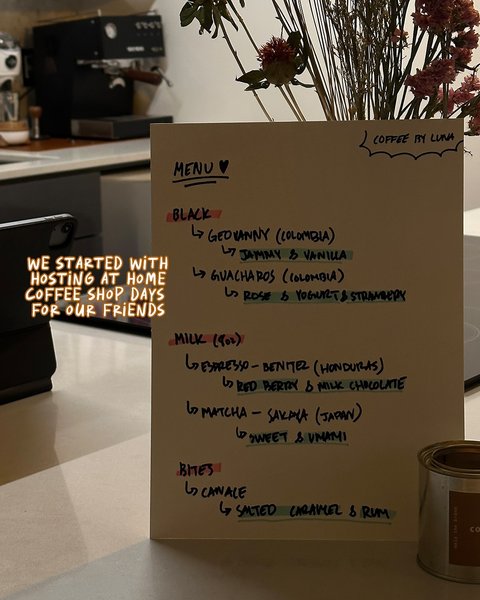 COFFEE BY LUNA
MENU ♥
BLACK
↳ GEOVANNY (COLOMBIA)
↳ JAMMY & VANILLA
↳ GUACHAROS (COLOMBIA)
↳ ROSE & YOGURT & STRAWBERRY
MILK (9oz)
↳ ESPRESSO - BENITEZ (HONDURAS)
↳ RED BERRY & MILK CHOCOLATE
↳ MATCHA - (JAPAN)
↳ SWEET & UMAMI
BITES
↳ CANALE
↳ SALTED CARAMEL & RUM
WE STARTED WITH
HOSTING AT HOME
COFFEE SHOP DAYS
FOR OUR FRIENDS